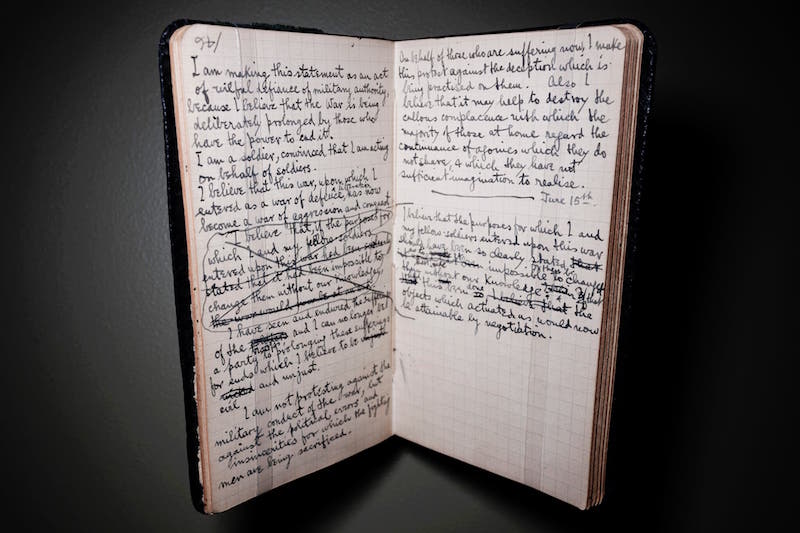 I am making this statement as an act
of wilful defiance of military authority,
because I believe that the War is being
deliberately prolonged by those who
have the power to end it.
I am a soldier, convinced that I am acting
on behalf of soldiers.
I believe that this war, upon which I
entered as a war of defence, & liberation, has now
become a war of aggression and conquest
I believe that, if the purposes for
which I and my fellow soldiers
entered upon this war had been
stated that it had been impossible to
change them without our knowledge,
the war would
I have seen and endured the
of the and I can no longer be
a party to prolonging these sufferings
for ends which I believe to be
evil and unjust.
I am not protesting against the
military conduct of the war, but
against the political errors and
insincerities for which the fighting
men are being sacrificed.
On behalf of those who are suffering now, I make
this protest against the deception which is
being practised on them. Also I
believe that it may help to destroy the
callous complacence with which the
majority of those at home regard the
continuance of agonies which they do
not share, & which they have not
sufficient imagination to realise.
June 15th.
I believe that the purposes for which I and
my fellow soldiers entered upon this war
have been so clearly stated that
impossible to change
them without our knowledge
this been done the
objects which actuated us would now
be attainable by negotiation.